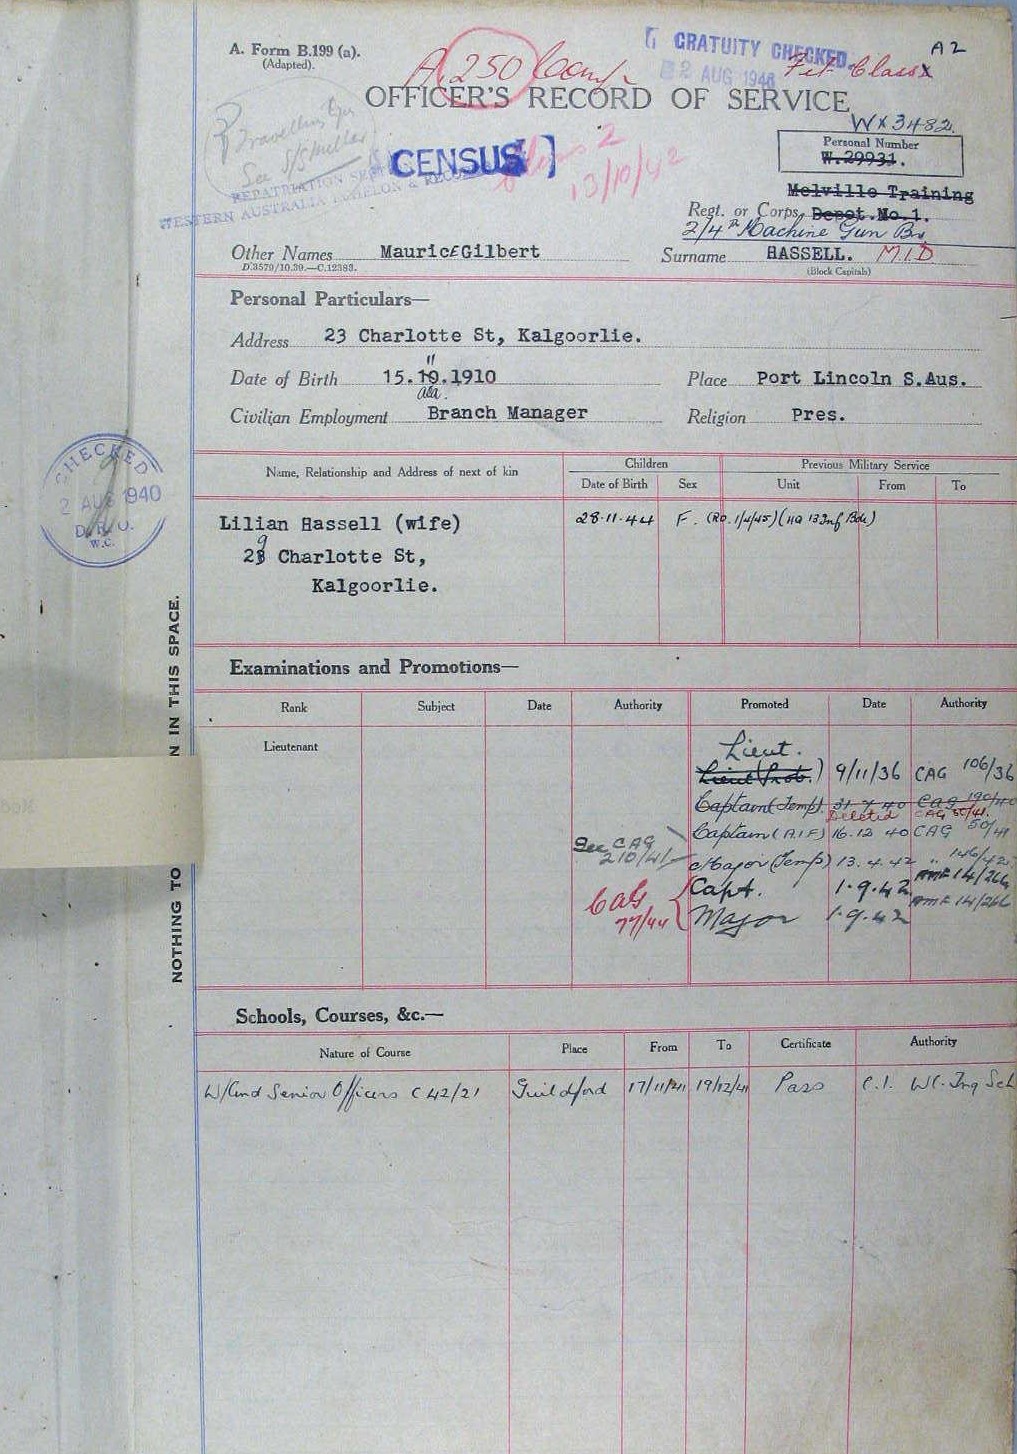 A. Form B.199 (a).
(Adapted).
A 250 Comp
GRATUITY CHECKED.
2 AUG 1946
Fit Class X
A2
OFFICER'S RECORD OF SERVICE
WX3482.
Personal Number
W.29931.
Travelling
See
CENSUS ]
2
13/10/42
REPATRIATION
WESTERN AUSTRALIA ECHELON & RECORDS
Melville Training
Regt. or Corps Depot.No.1.
2/4th Machine Gun Bn
Other Names Maurice Gilbert
D.3579/10.39.—C.12383.
Surname HASSELL. M.I.D
(Block Capitals)
Personal Particulars—
Address 23 Charlotte St, Kalgoorlie.
11
Date of Birth 15.10.1910
Place Port Lincoln S.Aus.
Civilian Employment Branch Manager
Religion Pres.
Name, Relationship and Address of next of kin
Children
Previous Military Service
Date of Birth
Sex
Unit
From
To
CHECKED
2 AUG 1940
D.R.O.
W.C.
Lilian Hassell (wife)
28.11.44 F. (RO. 1/4/45) (HQ 13 Inf Bde)
29 Charlotte St,
Kalgoorlie.
NOTHING TO N IN THIS SPACE.
Examinations and Promotions—
Rank
Subject
Date
Authority
Promoted
Date
Authority
Lieutenant
Lieut.
Lieut (Prob.) 9/11/36 CAG 106/36
Captain (Temp) 31 7 40 CAG 190/40
Deleted CAG 50/41.
Captain (A.I.F) 16.12 40 CAG 50/41
See CAG 210/41
Major (Temp) 13.4.42 " 146/42
CAG 77/44
Capt. 1.9.42 AMF 14/266
Major 1.9.42 AMF 14/266
Schools, Courses, &c.—
Nature of Course
Place
From
To
Certificate
Authority
W/Cmd Senior Officers C 42/21 Guildford 17/11/41 19/12/41 Pass C.I. WC. Tng Sch